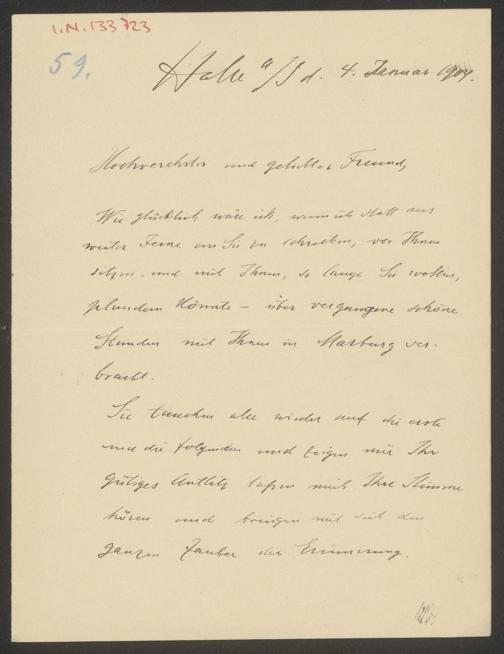 I.N. 133723
59.
Halle a/S d. 4. Januar 1904.
Hochverehrter und geliebter Freund,
Wie glücklich wäre ich, wenn ich statt aus
weiter Ferne an Sie zu schreiben, vor Ihnen
sitzen und mit Ihnen, so lange Sie wollen,
plaudern könnte – über vergangene schöne
Stunden mit Ihnen in Marburg ver-
bracht.
Sie tauchen alle wieder auf die erste
und die folgenden und zeigen mir Ihr
gütiges Antlitz lassen mich Ihre Stimme
hören und bringen mit sich den
ganzen Zauber der Erinnerung.